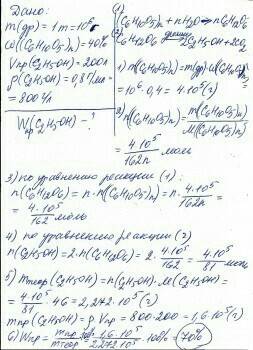 Дано:
m(др) = 1т = 10⁶г
ω((C₆H₁₀O₅)n) = 40%
Vпр(C₂H₅OH) = 200л
ρ(C₂H₅OH) = 0,8г/мл =
= 800г/л
Wпр(C₂H₅OH) - ?
1) (C₆H₁₀O₅)n + nH₂O → nC₆H₁₂O₆
2) C₆H₁₂O₆ → 2C₂H₅OH + 2CO₂
1) m((C₆H₁₀O₅)n) = m(др)·ω((C₆H₁₀O₅)n) =
= 10⁶·0,4 = 4·10⁵(г)
2) n((C₆H₁₀O₅)n) = m((C₆H₁₀O₅)n) / M((C₆H₁₀O₅)n) =
= 4·10⁵ / 162n моль
3) по уравнению реакции (1):
n(C₆H₁₂O₆) = n·n((C₆H₁₀O₅)n) = n·4·10⁵ / 162n =
= 4·10⁵ / 162 моль
4) по уравнению реакции (2)
n(C₂H₅OH) = 2·n(C₆H₁₂O₆) = 2·4·10⁵ / 162 = 4·10⁵ / 81 моль
5) mтеор(C₂H₅OH) = n(C₂H₅OH)·M(C₂H₅OH) =
= 4·10⁵ / 81 · 46 = 2,272·10⁵(г)
mпр(C₂H₅OH) = ρ·Vпр = 800·200 = 1,6·10⁵(г)
6) Wпр = mпр / mтеор = 1,6·10⁵ / 2,272·10⁵ · 100% = 70%